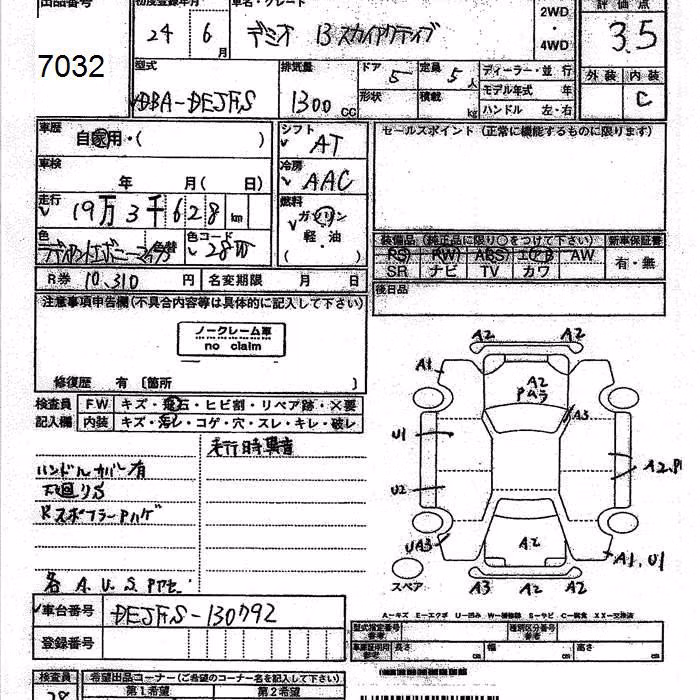 出品番号 初度登録年月 車名・グレード 2WD 評価点
24年 6月 デミオ 13スカイアクティブ ・ 3.5
7032 4WD
型式 排気量 ドア 5 定員 5人 ディーラー・並行 外装 内装
DBA-DEJFS 1300cc 形状 積載 kg モデル年式 年 C
ハンドル 左・右
車歴 自家用・( ) シフト AT セールスポイント (正常に機能するものに限ります)
車検 年 月( 日) 冷房 AAC
走行 19万3千628km 燃料 ガソリン
軽・油
( )
色 色替 色コード 28W
装備品 (純正品に限り○をつけて下さい) 新車保証書
PS PW ABS エアB AW 有・無
SR ナビ TV カワ
R券 10,310円 名変期限 月 日 後日品
注意事項申告欄(不具合内容等は具体的に記入して下さい)
ノークレーム車
no claim
修復歴 有 〔箇所 〕
検査員 FW キズ・飛石・ヒビ割・リペア跡・X要
記入欄 内装 キズ・汚レ・コゲ・穴・スレ・キレ・破レ
走行時異音
ハンドルカバー有
下廻りS
RスポイラーPハゲ
各 A.U.S
A2 A2
A1 A2
Pムラ
A3
U1
A2.P1
U2
UA3 A2 A1,U1
スペア A3 A2 A2
A=キズ E=エクボ U=凹み W=補修跡 S=サビ C=腐食 XX=交換済
車台番号 DEJFS-130792
登録番号
型式指定番号 類別区分番号
長さ cm 幅 cm 高さ cm
検査員 希望出品コーナー(ご希望のコーナー名を記入して下さい)
28 第1希望 第2希望